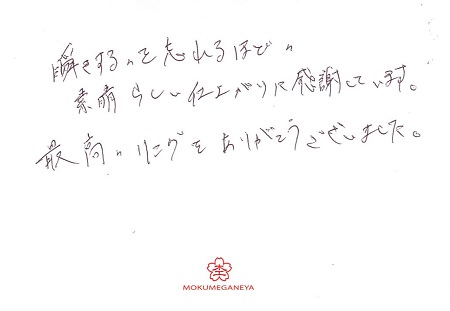 瞬きするのを忘れるほどの
素晴らしい仕上がりに感謝しています。
最高のリングをありがとうございました。
MOKUMEGANEYA